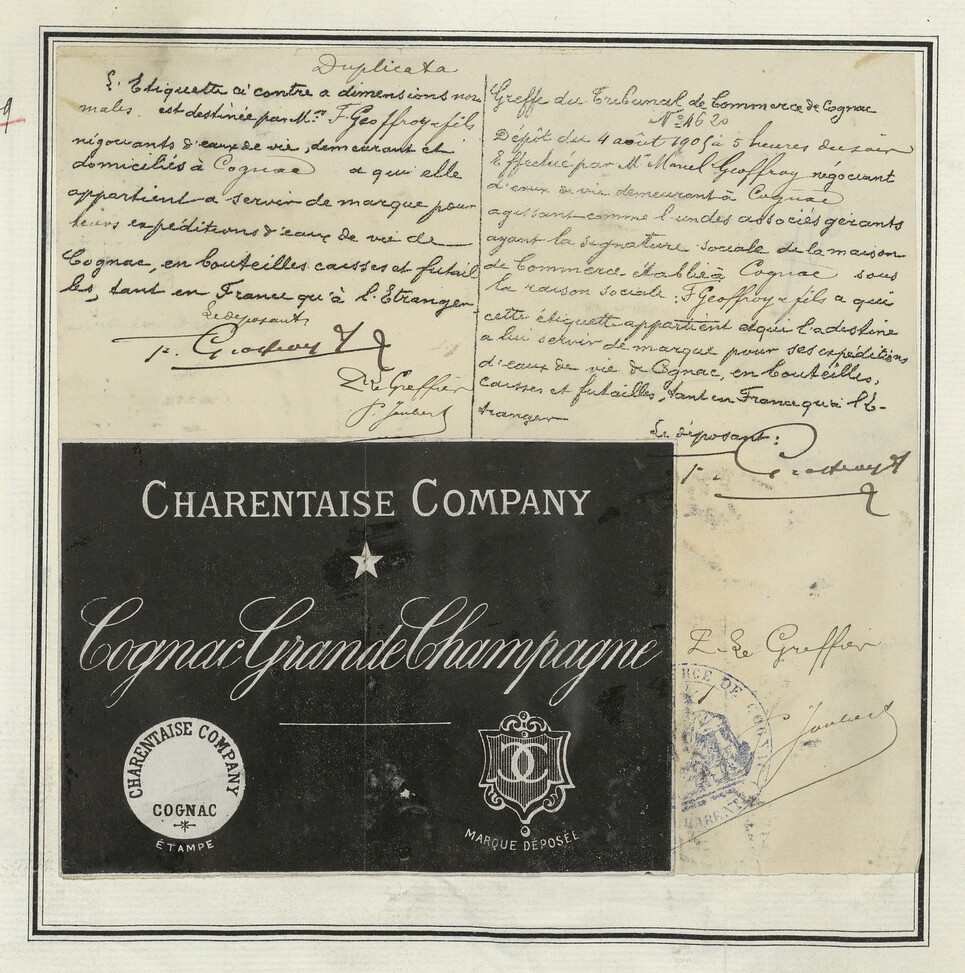 Duplicata
L'Etiquette ci contre a dimensions nor
males. est destinée par Mrs F. Geoffroy & fils
négociants d'eaux de vie, demeurant et
domiciliés à Cognac a qui elle
appartient a servir de marque pour
leurs expéditions d'eaux de vie de
Cognac, en bouteilles caisses et futail
les, tant en France qu'à l'Etranger
Le déposant
p. Geoffroy
P. Le Greffier
Joubert
Greffe du Tribunal de Commerce de Cognac
Nº 4620
Dépôt du 4 août 1905 à 5 heures du soir
Effectué par Mr Marcel Geoffroy négociant
d'eaux de vie demeurant à Cognac
agissant comme l'un des associés gérants
ayant la signature sociale de la maison
de Commerce établie à Cognac sous
la raison sociale : F. Geoffroy & fils a qui
cette étiquette appartient et qui l'a destine
a lui servir de marque pour ses expéditions
d'eaux de vie de Cognac, en bouteilles,
caisses et futailles, tant en France qu'à l'E-
tranger
Le déposant :
p. Geoffroy
P. Le Greffier
Joubert
CHARENTAISE COMPANY
Cognac Grande Champagne
CHARENTAISE COMPANY
COGNAC
ÉTAMPE
MARQUE DÉPOSÉE
DE COGNAC